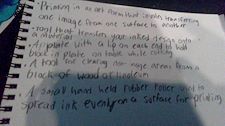 • Printing is an art form that involves transferring
one image from one surface to another
• Tool that transfers your inked design onto
a material
• A plate with a lip on each end to hold
block in place on table while cutting
• A tool for clearing non image areas from a
block of wood or linoleum
• A small hand held rubber roller used to
spread ink evenly on a surface for printing